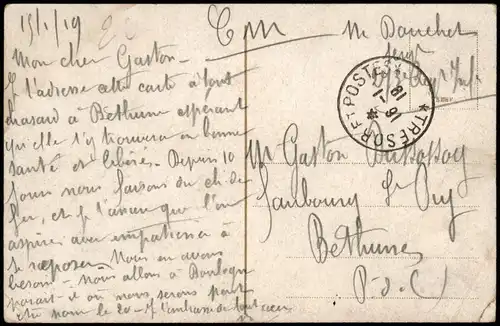 15/1/19
Mon cher Gaston -
Je t'adresse cette carte à tout
hasard à Béthune espérant
qu'elle t'y trouvera en bonne
santé et libéré. Depuis 10
jours nous faisons du ch. de
fer, et je t'assure que l'on
aspire avec impatience à
se reposer. Nous en avons
besoin - Nous allons à Boulogne
parait-il où nous serons peut
être même le 20 - Je t'embrasse de tout cœur
F M
M Douchet
Sergt
TRESOR ET POSTES
16 - 1
18
Mr Gaston
Faubourg St Pry
Béthune
P-d-C